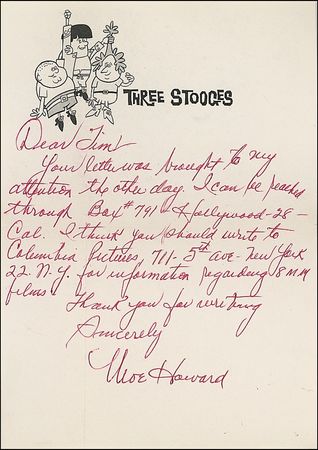 THREE STOOGES
Dear Jim
Your letter was brought to my
attention the other day. I can be reached
through Box #791 - Hollywood - 28 -
Cal. I think you should write to
Columbia Pictures, 711 - 5th Ave - New York
22. N.Y. for information regarding 8 MM
films.
Thank you for writing
Sincerely
Moe Howard